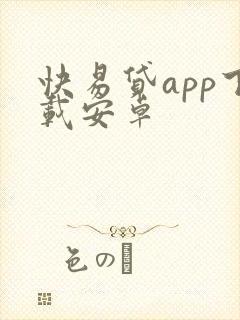 快易贷app下
载安卓
色の